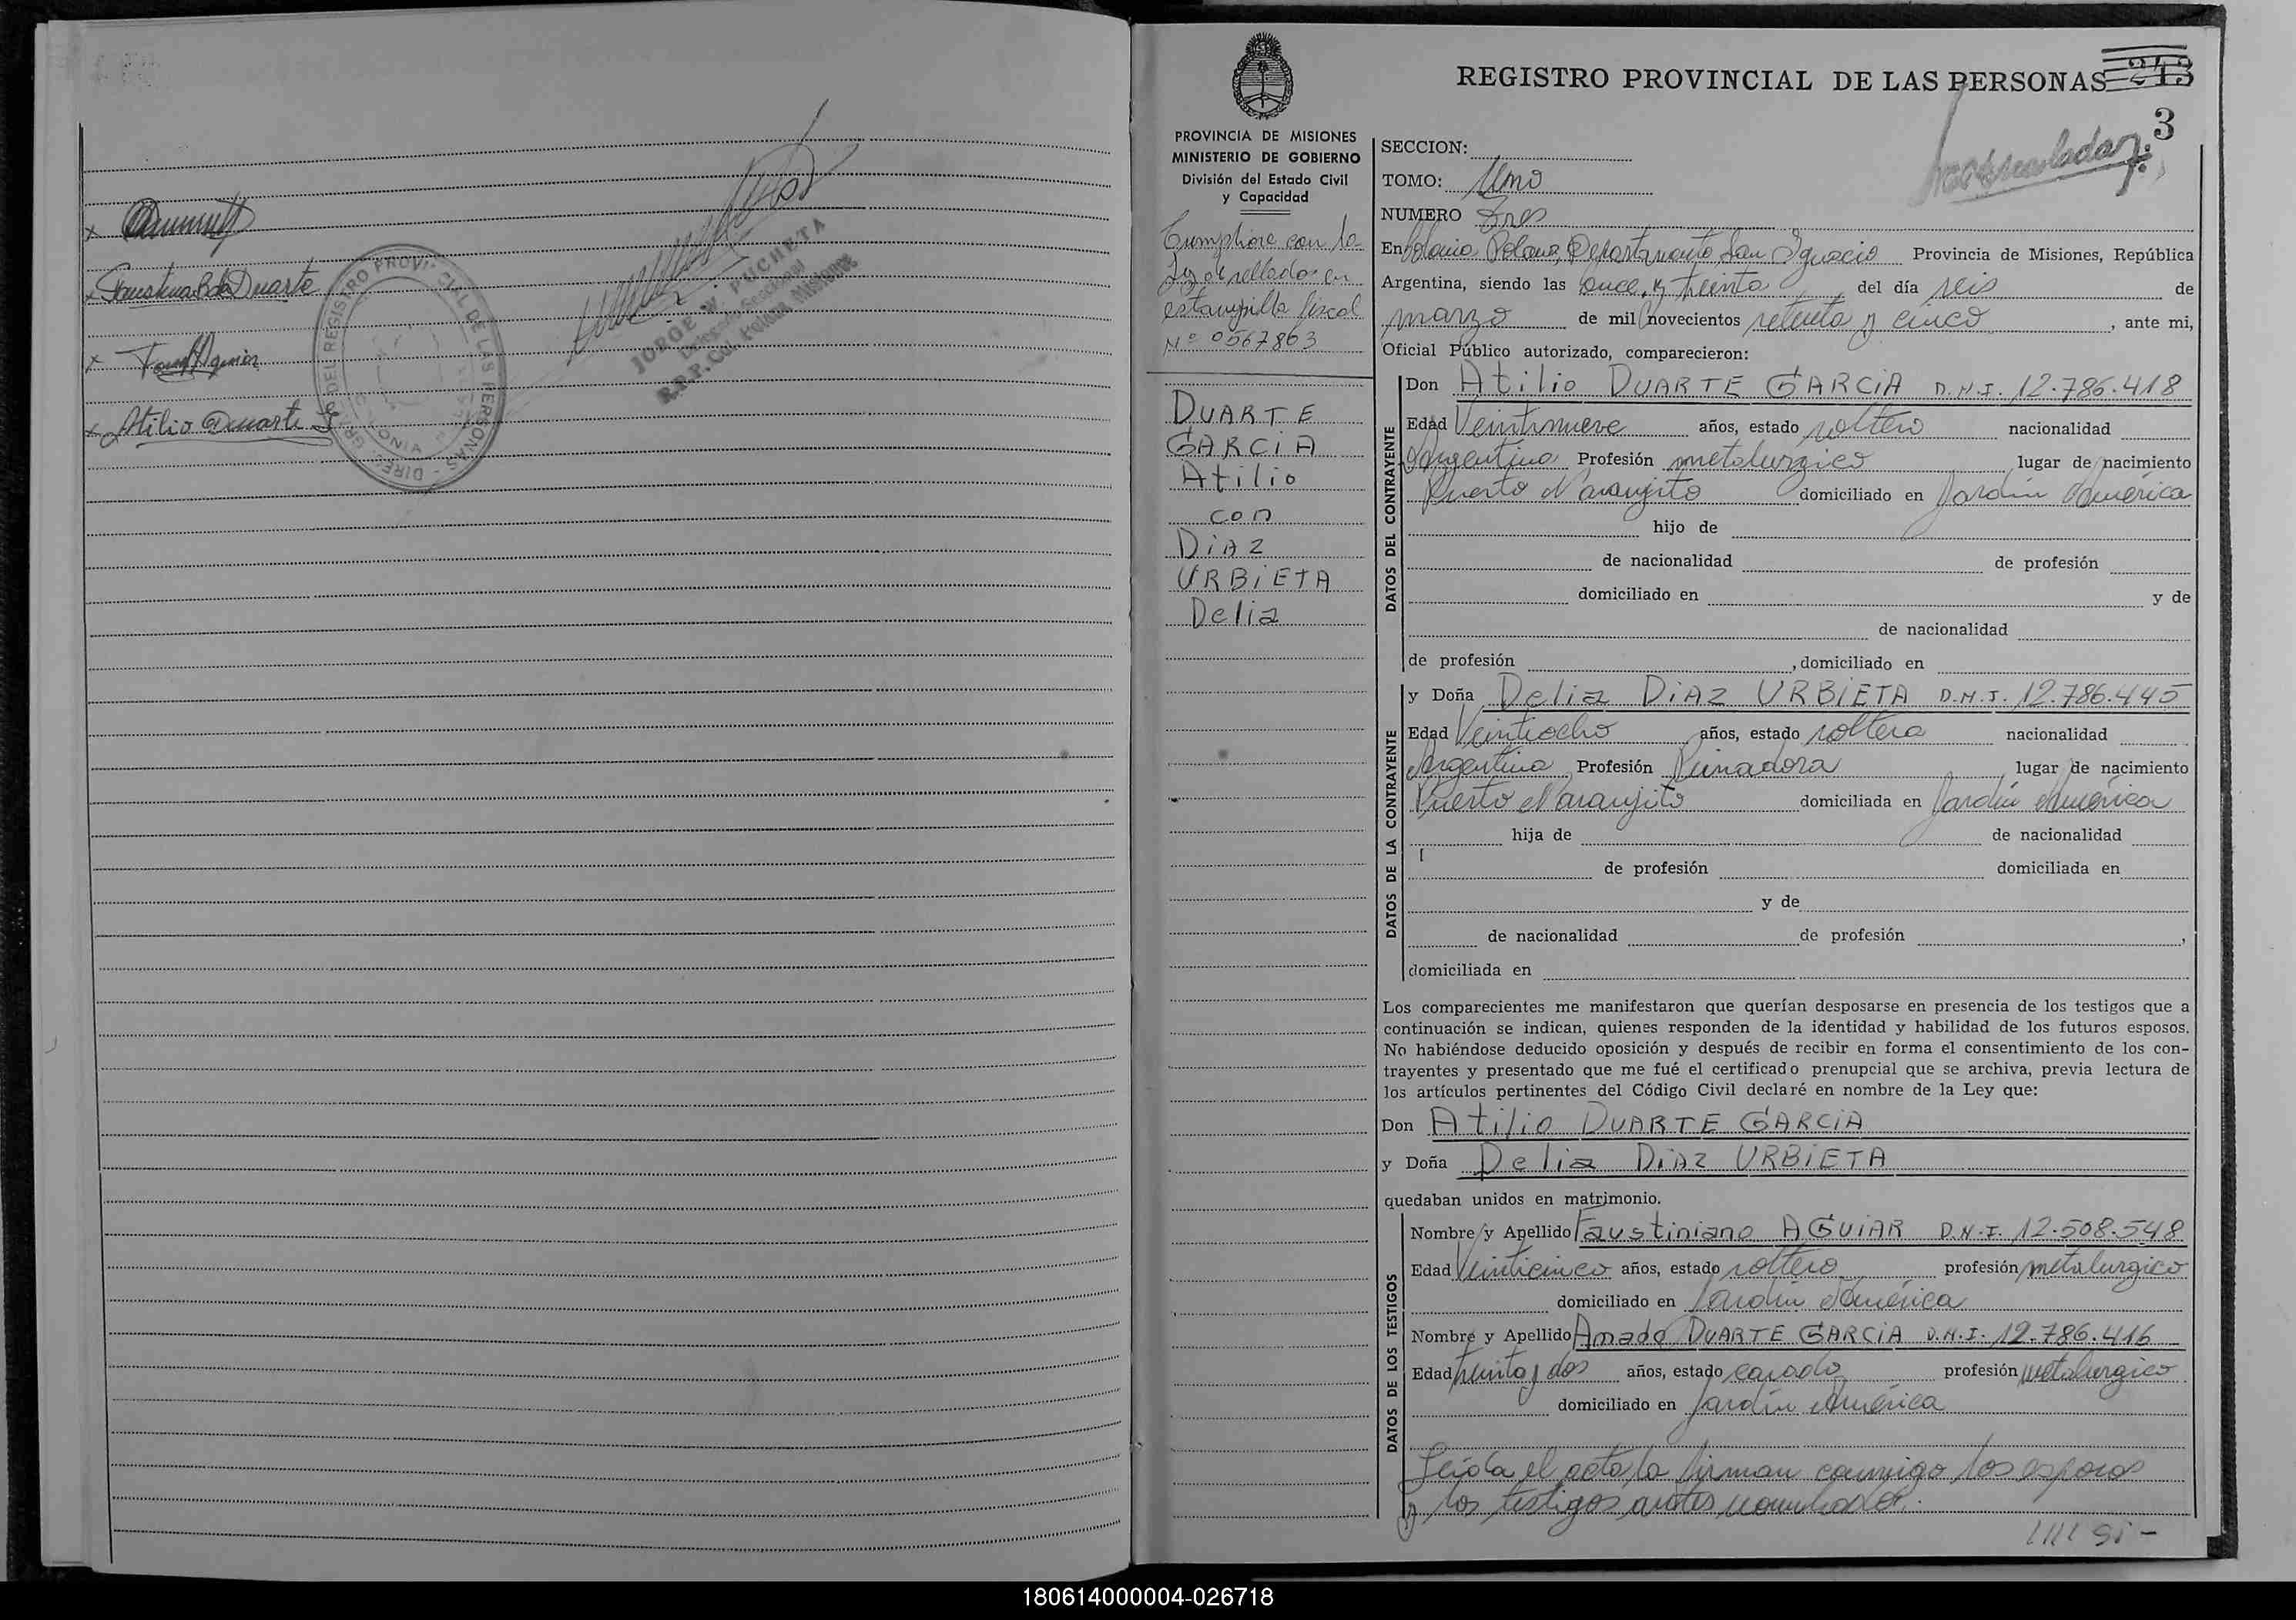 Faustina B de Duarte
Atilio Duarte G
DIREC. GRAL. DEL REGISTRO PROVINCIAL DE LAS PERSONAS
JORGE W. PUCHETA
Delegado Seccional
R.P.P. Col. Polana Misiones
REGISTRO PROVINCIAL DE LAS PERSONAS
243
3
PROVINCIA DE MISIONES
MINISTERIO DE GOBIERNO
División del Estado Civil
y Capacidad
Cumplióse con la
Ley de sellados en
estampilla fiscal
Nº 0567863
DUARTE
GARCIA
Atilio
con
DiAZ
URBiETA
Delia
SECCION:
TOMO: Uno
NUMERO Tres
En Colonia Polana, Departamento San Ignacio Provincia de Misiones, República
Argentina, siendo las once y treinta del día seis de
marzo de mil novecientos setenta y cinco, ante mi,
Oficial Público autorizado, comparecieron:
DATOS DEL CONTRAYENTE
Don Atilio DUARTE GARCiA D.N.I. 12.786.418
Edad Veintinueve años, estado soltero nacionalidad
Argentina Profesión metalurgico lugar de nacimiento
Puerto Naranjito domiciliado en Jardín América
hijo de
de nacionalidad de profesión
domiciliado en y de
de nacionalidad
de profesión , domiciliado en
DATOS DE LA CONTRAYENTE
y Doña Delia DiAZ URBiETA D.N.I. 12.786.445
Edad Veintiocho años, estado soltera nacionalidad
Argentina Profesión Peinadora lugar de nacimiento
Puerto Naranjito domiciliada en Jardín América
hija de de nacionalidad
de profesión domiciliada en
y de
de nacionalidad de profesión ,
domiciliada en
Los comparecientes me manifestaron que querían desposarse en presencia de los testigos que a
continuación se indican, quienes responden de la identidad y habilidad de los futuros esposos.
No habiéndose deducido oposición y después de recibir en forma el consentimiento de los con-
trayentes y presentado que me fué el certificado prenupcial que se archiva, previa lectura de
los artículos pertinentes del Código Civil declaré en nombre de la Ley que:
Don Atilio DUARTE GARCiA
y Doña Delia DiAZ URBiETA
quedaban unidos en matrimonio.
DATOS DE LOS TESTIGOS
Nombre y Apellido Faustiniano AGUiAR D.N.I. 12.508.548
Edad Veinticinco años, estado soltero profesión metalurgico
domiciliado en Jardín América
Nombre y Apellido Amado DUARTE GARCiA D.N.I. 12.786.416
Edad treinta y dos años, estado casado profesión metalurgico
domiciliado en Jardín América
Leída el acta la firman conmigo los esposos
y los testigos antes nombrados.
180614000004-026718